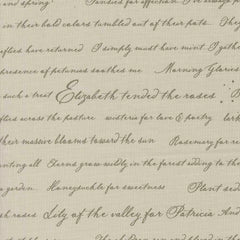 and spring. Pansies for affection. I've always p
in their bold colors tumbled out of their pots. They
flies have returned I simply must have mint I gathe
presence of petunias soothes me Morning Glories
such a treat Elizabeth tended the roses
flies across the pasture wisteria for love & poetry lark
their massive blooms toward the sun Rosemary for re
anting all. Ferns grow wildly in the forest aiding to the
a garden. Honeysuckle for sweetness Plant sid
sh roses Lily of the valley for Patricia And